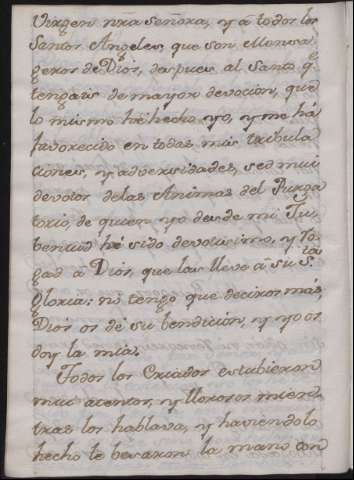 Virgen nr̃a señora, y á todos los
Santos Angeles, que son Mensa
geros de Dios, despues al Santo q̃
tengais de mayor devocion, que
lo mismo hé hecho yo, y me há
favorecido en todas mis tribula
ciones, y adversidades, sed mui
devotos de las Animas del Purga
torio, de quien yo desde mi Ju
bentud hé sido devotisimo, y Ro
gad á Dios, que las lleve á su S.ta
gloria: no tengo que deciros mas,
Dios os dé su bendicion, y yo os
doy la mia.
Todos los Criados estubieron
mui atentos, y llorosos mien
tras los hablava, y haviendolo
hecho le besaron la mano con